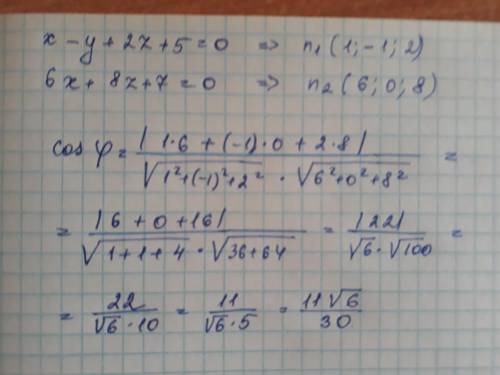 x - y + 2z + 5 = 0 => n₁ (1; -1; 2)
6x + 8z + 7 = 0 => n₂ (6; 0; 8)
cos φ = |1·6 + (-1)·0 + 2·8| / √(1² + (-1)² + 2²) · √(6² + 0² + 8²) =
= |6 + 0 + 16| / √(1 + 1 + 4) · √(36 + 64) = |22| / √6 · √100 =
= 22 / √6 · 10 = 11 / √6 · 5 = 11√6 / 30